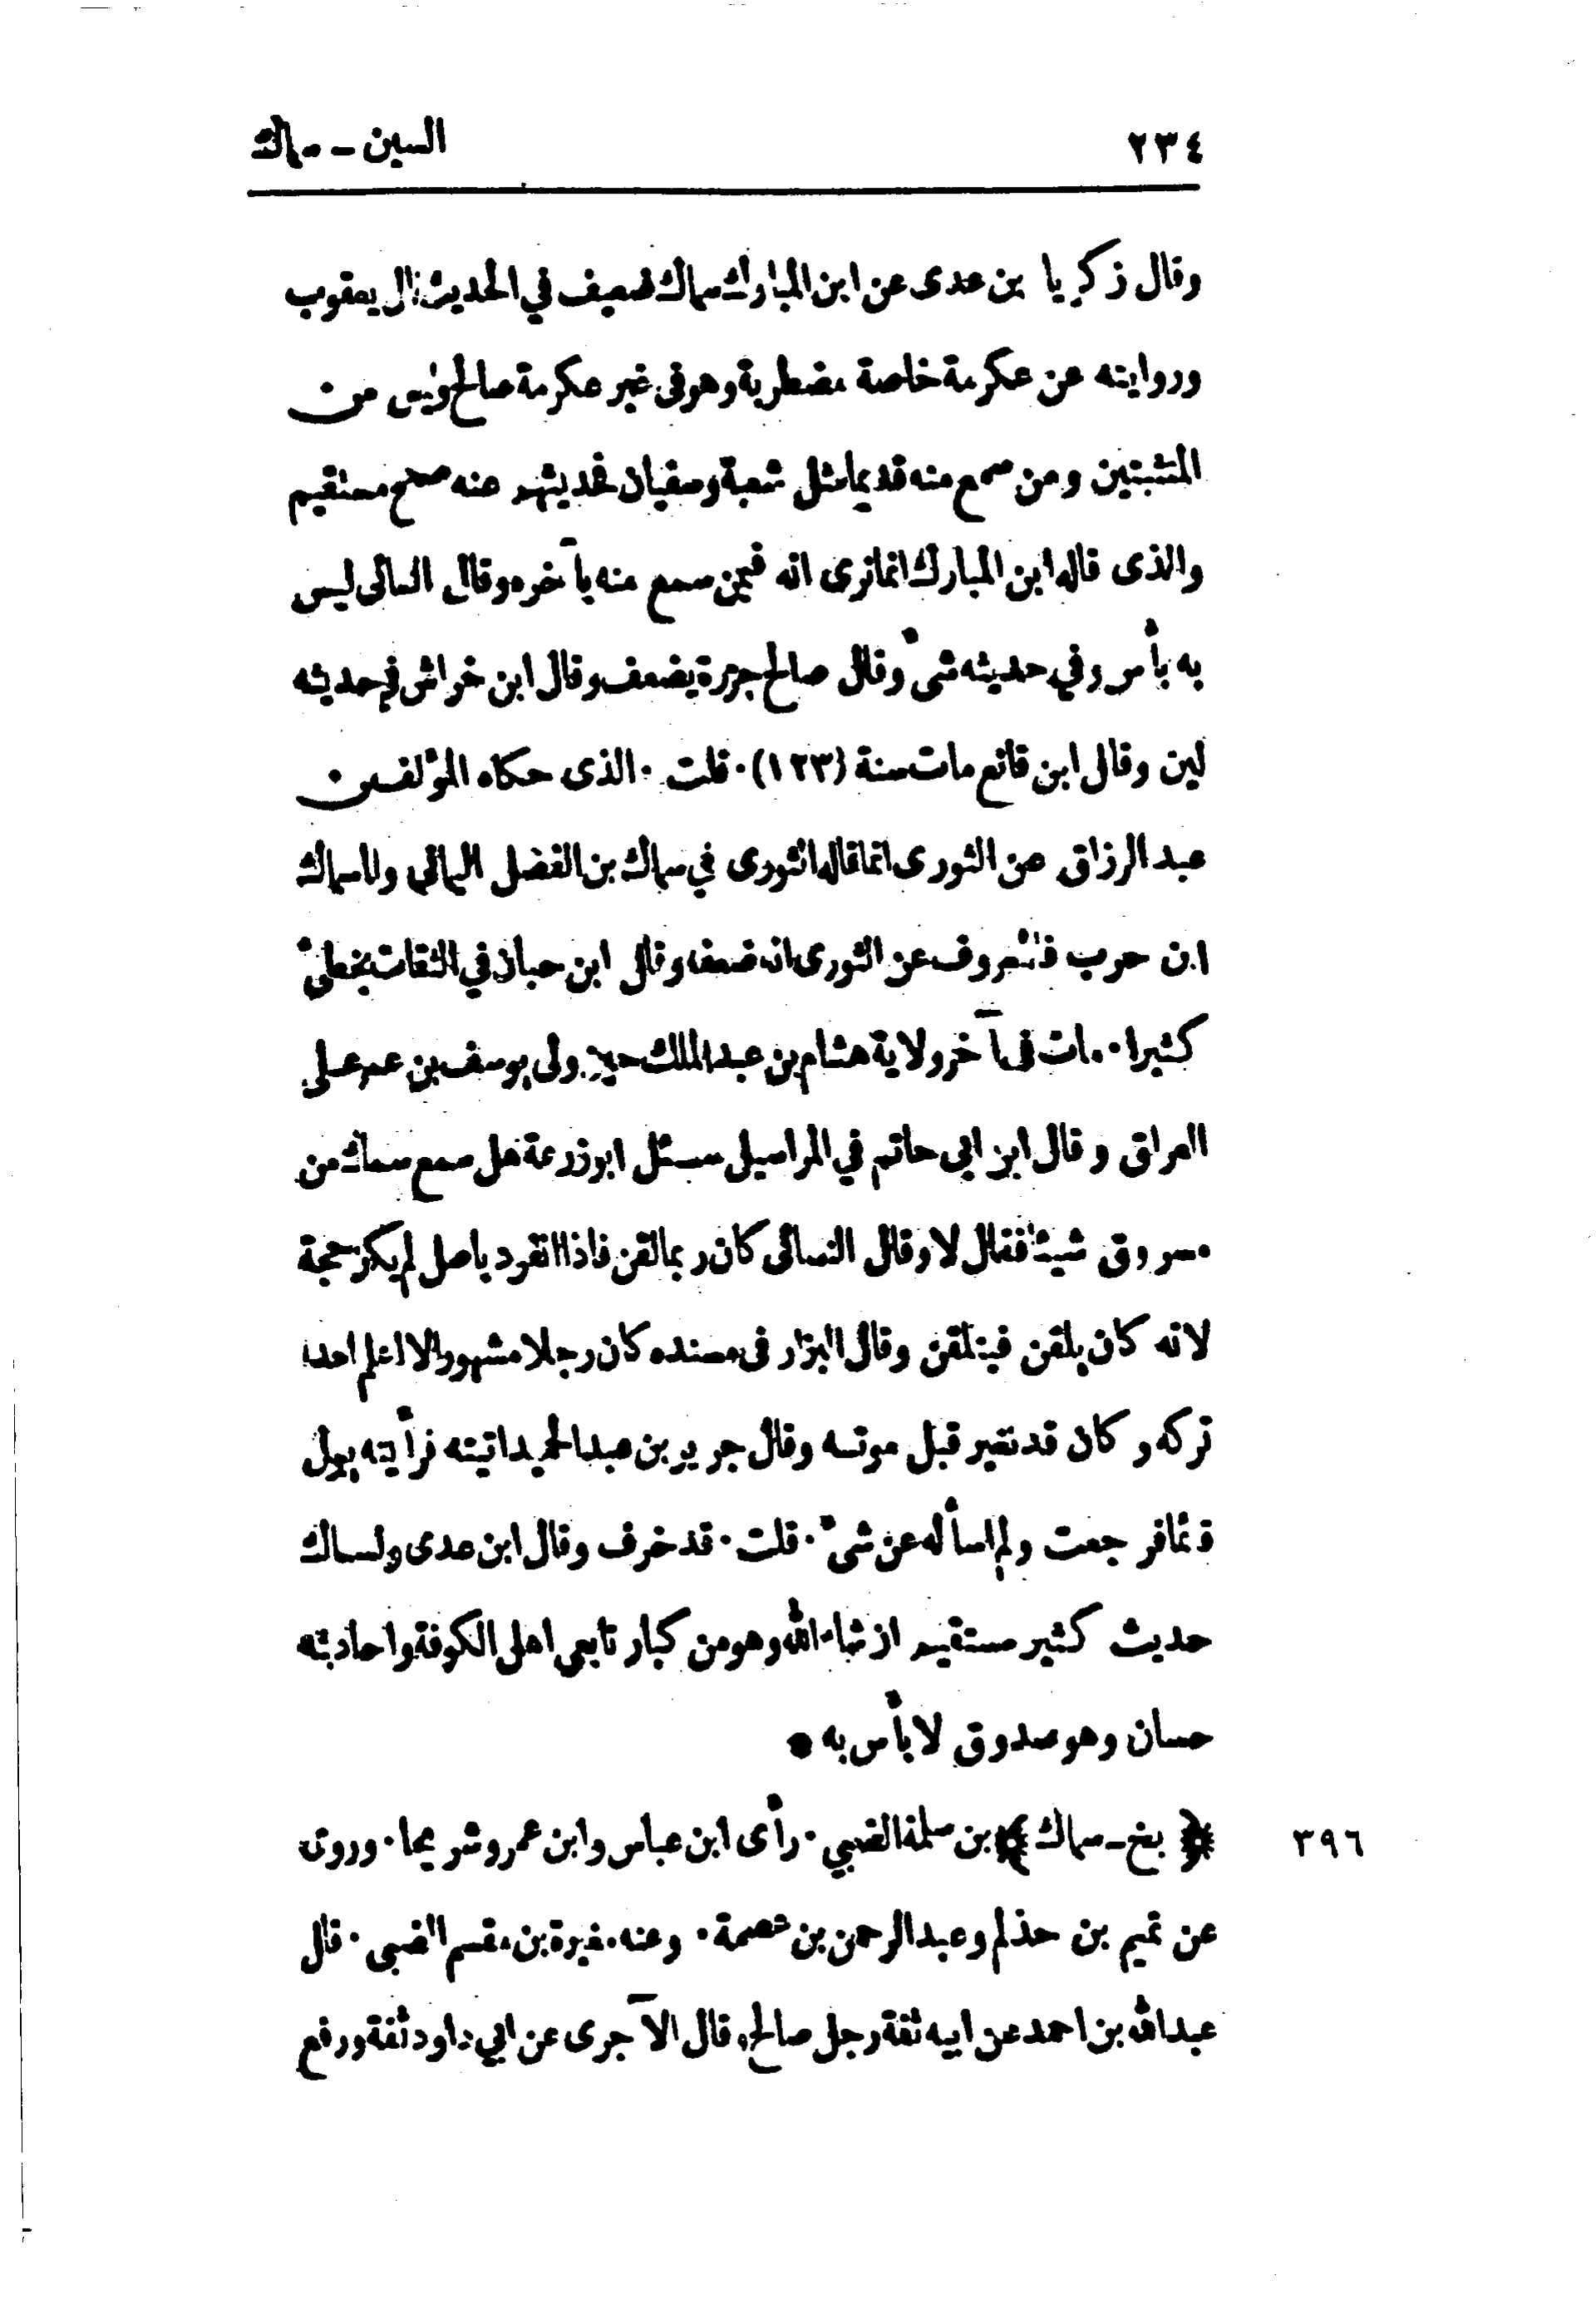 ٢٣٤
السين - سماك
وقال زكريا بن عدى عن ابن المبارك سماك ضعيف في الحديث قال يعقوب
وروايته عن عكرمة خاصة مضطربة وهو في غير عكرمة صالح وليس من
المتثبتين ومن سمع منه قديما مثل شعبة وسفيان فحديثهم عنه صحيح مستقيم
والذى قاله ابن المبارك انما نرى انه فيمن سمع منه بآخره وقال النسائى ليس
به بأس وفي حديثه شىء وقال صالح جزرة يضعف وقال ابن خراش في حديثه
لين وقال ابن قانع مات سنة (١٢٣)٠ قلت ٠ الذى حكاه المؤلف عن
عبد الرزاق عن الثورى انما قاله الثورى في سماك بن الفضل اليماني واما سماك
ابن حرب فالمعروف عن الثورى انه ضعفه وقال ابن حبان في الثقات يخطئ
كثيرا ٠ مات في آخر ولاية هشام بن عبد الملك حين ولى يوسف بن عمر على
العراق وقال ابن ابي حاتم في المراسيل سئل ابو زرعة هل سمع سماك من
مسروق شيئا فقال لا وقال النسائى كان ربما لقن فاذا انفرد باصل لم يكن حجة
لانه كان يلقن فيتلقن وقال البزار في مسنده كان رجلا مشهورا لا اعلم احدا
تركه وكان قد تغير قبل موته وقال جرير بن عبد الحميد اتيته فرأيته يبول
قائما فرجعت ولم اسأله عن شىء ٠ قلت ٠ قد خرف وقال ابن عدى ولسماك
حديث كثير مستقيم ان شاء الله وهو من كبار تابعي اهل الكوفة واحاديثه
حسان وهو صدوق لا بأس به ●
٣٩٦ ﴿ بخ - سماك ﴾ بن سلمة الضبي ٠ رأى ابن عباس وابن عمر وشريحا ٠ وروى
عن تميم بن حذلم وعبد الرحمن بن عصمة ٠ وعنه مغيرة بن مقسم الضبى ٠ قال
عبد الله بن احمد عن ابيه ثقة رجل صالح وقال الآجرى عن ابي داود ثقة ورفع